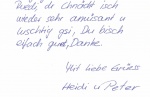 Ruedi, du chnödt isch
wieder sehr amüsant u
luschtig gsi, Du bisch
eifach guet, Danke.
Mit liebe Grüess
Heidi u Peter